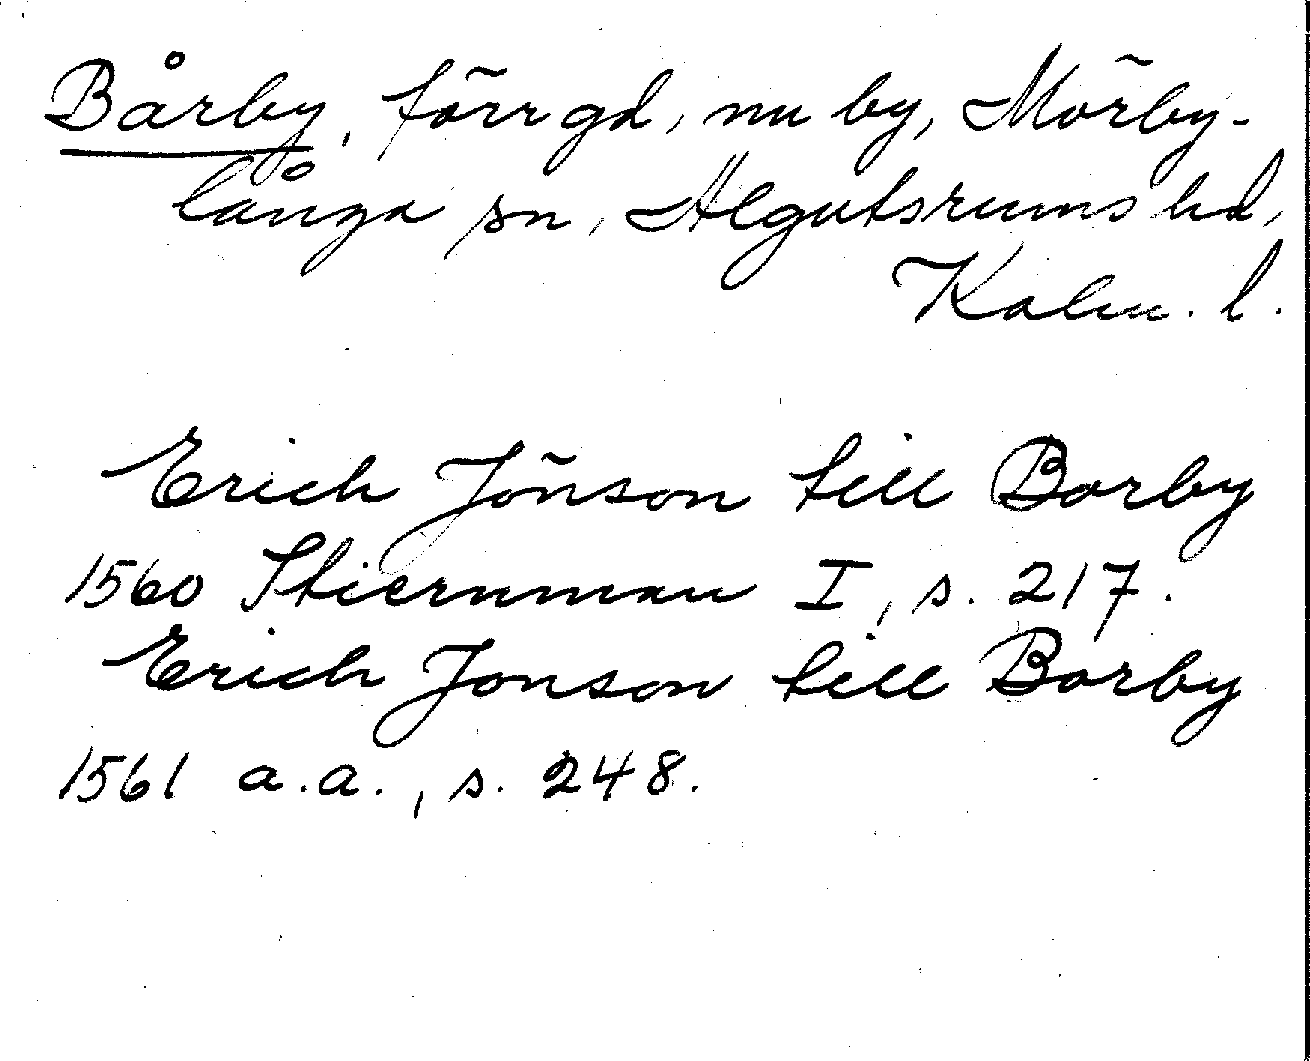 Bårby, förr gd, nu by, Mörby-
långa sn, Algutsrums hd,
Kalm. l.
Erich Jönson till Borby
1560 Stiernman I, s. 217.
Erich Jonson till Borby
1561 a.a., s. 248.